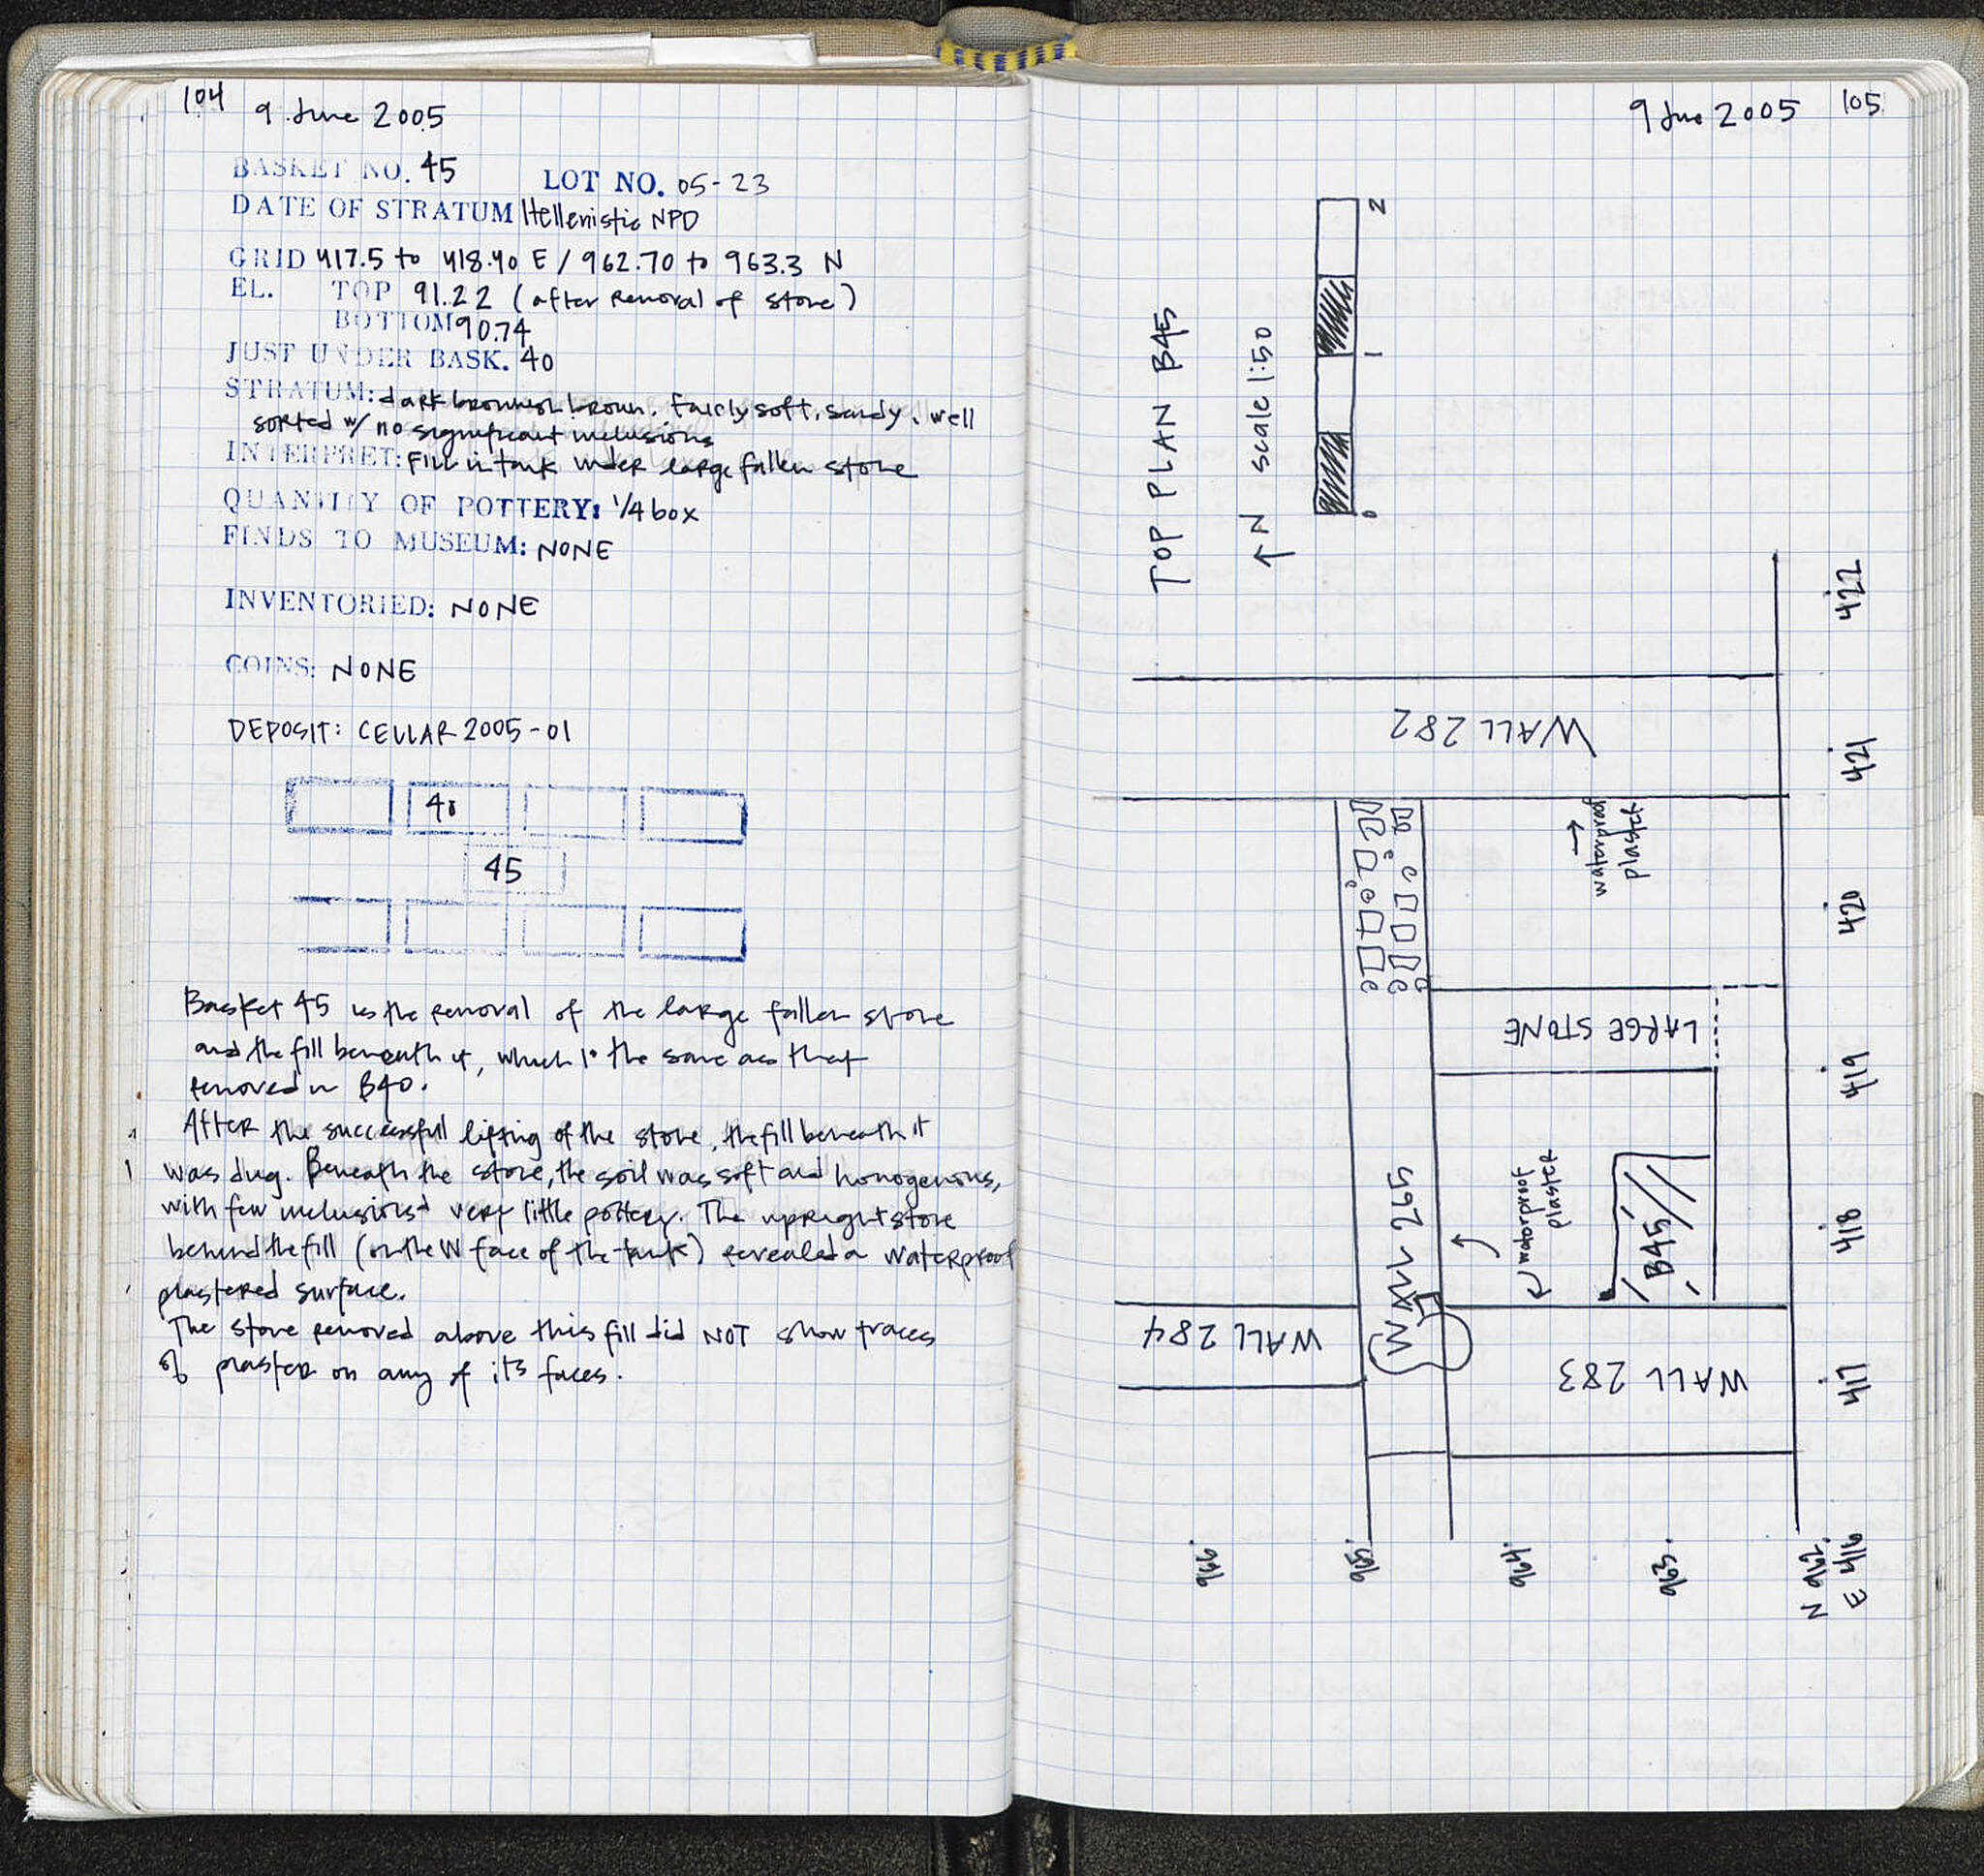 104 9 June 2005
BASKET NO. 45 LOT NO. 05-23
DATE OF STRATUM Hellenistic NPD
GRID 417.5 to 418.40 E / 962.70 to 963.3 N
EL. TOP 91.22 (after Removal of stone)
BOTTOM 90.74
JUST UNDER BASK. 40
STRATUM: dark brownish brown. Fairly soft, sandy, well
sorted w/ no significant inclusions
INTERPRET: Fill in tank under large fallen stone
QUANTITY OF POTTERY: 1/4 box
FINDS TO MUSEUM: NONE
INVENTORIED: NONE
COINS: NONE
DEPOSIT: CELLAR 2005-01
40
45
Basket 45 is the removal of the large fallen stone
and the fill beneath it, which is the same as that
removed in B40.
After the successful lifting of the stone, the fill beneath it
was dug. Beneath the stone, the soil was soft and homogenous,
with few inclusions + very little pottery. The upright stone
behind the fill (on the W face of the tank) revealed a waterproof
plastered surface.
The stone removed above this fill did NOT show traces
of plaster on any of its faces.
9 June 2005 105
TOP PLAN B45
↑N scale 1:50
0 1 2
WALL 282
waterproof
plaster
LARGE STONE
WALL 265
waterproof
plaster
B45
WALL 284
WALL 283
422
421
420
419
418
417
966
965
964
963
N 962
E 416